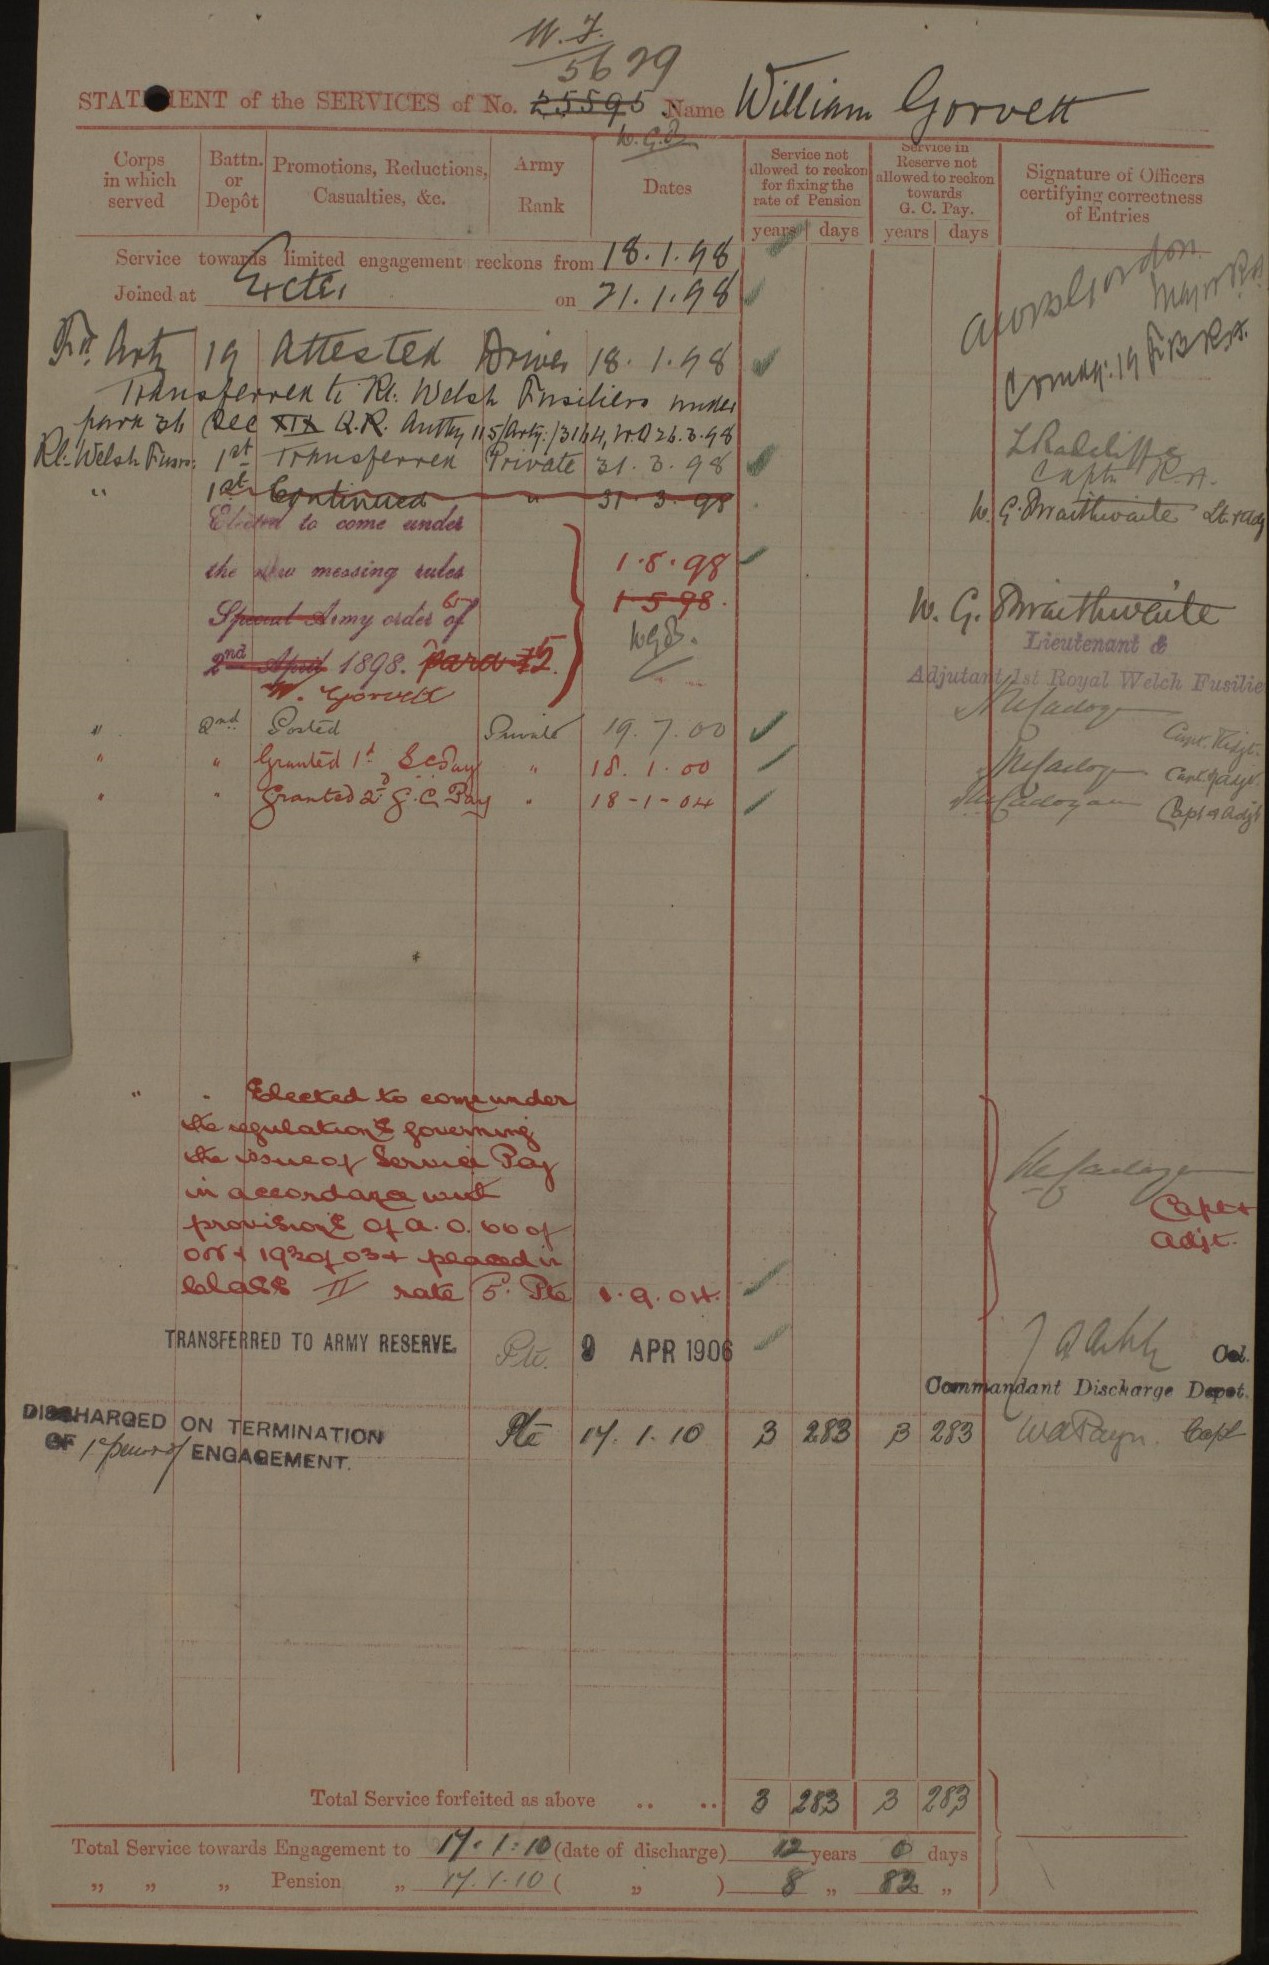 W.F.
5629
STATEMENT of the SERVICES of No. 25595 Name William Gorvett
W.G.B.
Corps in which served
Battn. or Depôt
Promotions, Reductions, Casualties, &c.
Army Rank
Dates
Service not allowed to reckon for fixing the rate of Pension
years days
Service in Reserve not allowed to reckon towards G. C. Pay.
years days
Signature of Officers certifying correctness of Entries
Service towards limited engagement reckons from 18.1.98
Joined at Exeter on 21.1.98
Gordon Major R.A.
Fd. Arty 19 Attested Driver 18.1.98
Comdg. 19 F.B. R.A.
Transferred to Rl. Welsh Fusiliers under
para 36 Sec XIX Q.R. Authy 115/Arty./3164, W.O 26.3.98
Rl. Welsh Fusrs: 1st Transferred Private 31.3.98 Radcliffe Captn R.A.
" 1st Continued " 31.3.98 W. G. Braithwaite Lt & Adj
Elected to come under
the new messing rules 1.5.98
Special Army order 65 of 1.5.98. W. G. Braithwaite
2nd April 1898. para 12. 5 WGB. Lieutenant &
W. Gorvett Adjutant 1st Royal Welch Fusilie
" 2nd Posted Private 19.7.00 Cadogan Capt. & Adjt.
" " Granted 1st G.C. Pay " 18.1.00 Cadogan Capt & Adjt.
" " Granted 2nd G.C. Pay " 18-1-04 Cadogan Capt & Adjt
" " Elected to come under
the regulations governing
the issue of Service Pay
in accordance with Cadogan
provisions of A.O. 66 of Capt &
02 & 193 of 03 & placed in Adjt.
Class II rate 5d. Pte 1.9.04.
TRANSFERRED TO ARMY RESERVE. Pte. 9 APR 1906 Col.
Commandant Discharge Depot.
DISCHARGED ON TERMINATION Pte 17.1.10 3 283 3 283 Payn. Capt
OF 1st period of ENGAGEMENT.
Total Service forfeited as above .. .. 3 283 3 283
Total Service towards Engagement to 17.1.10 (date of discharge) 12 years 0 days
„ „ „ Pension „ 17.1.10 ( „ ) 8 „ 82 „